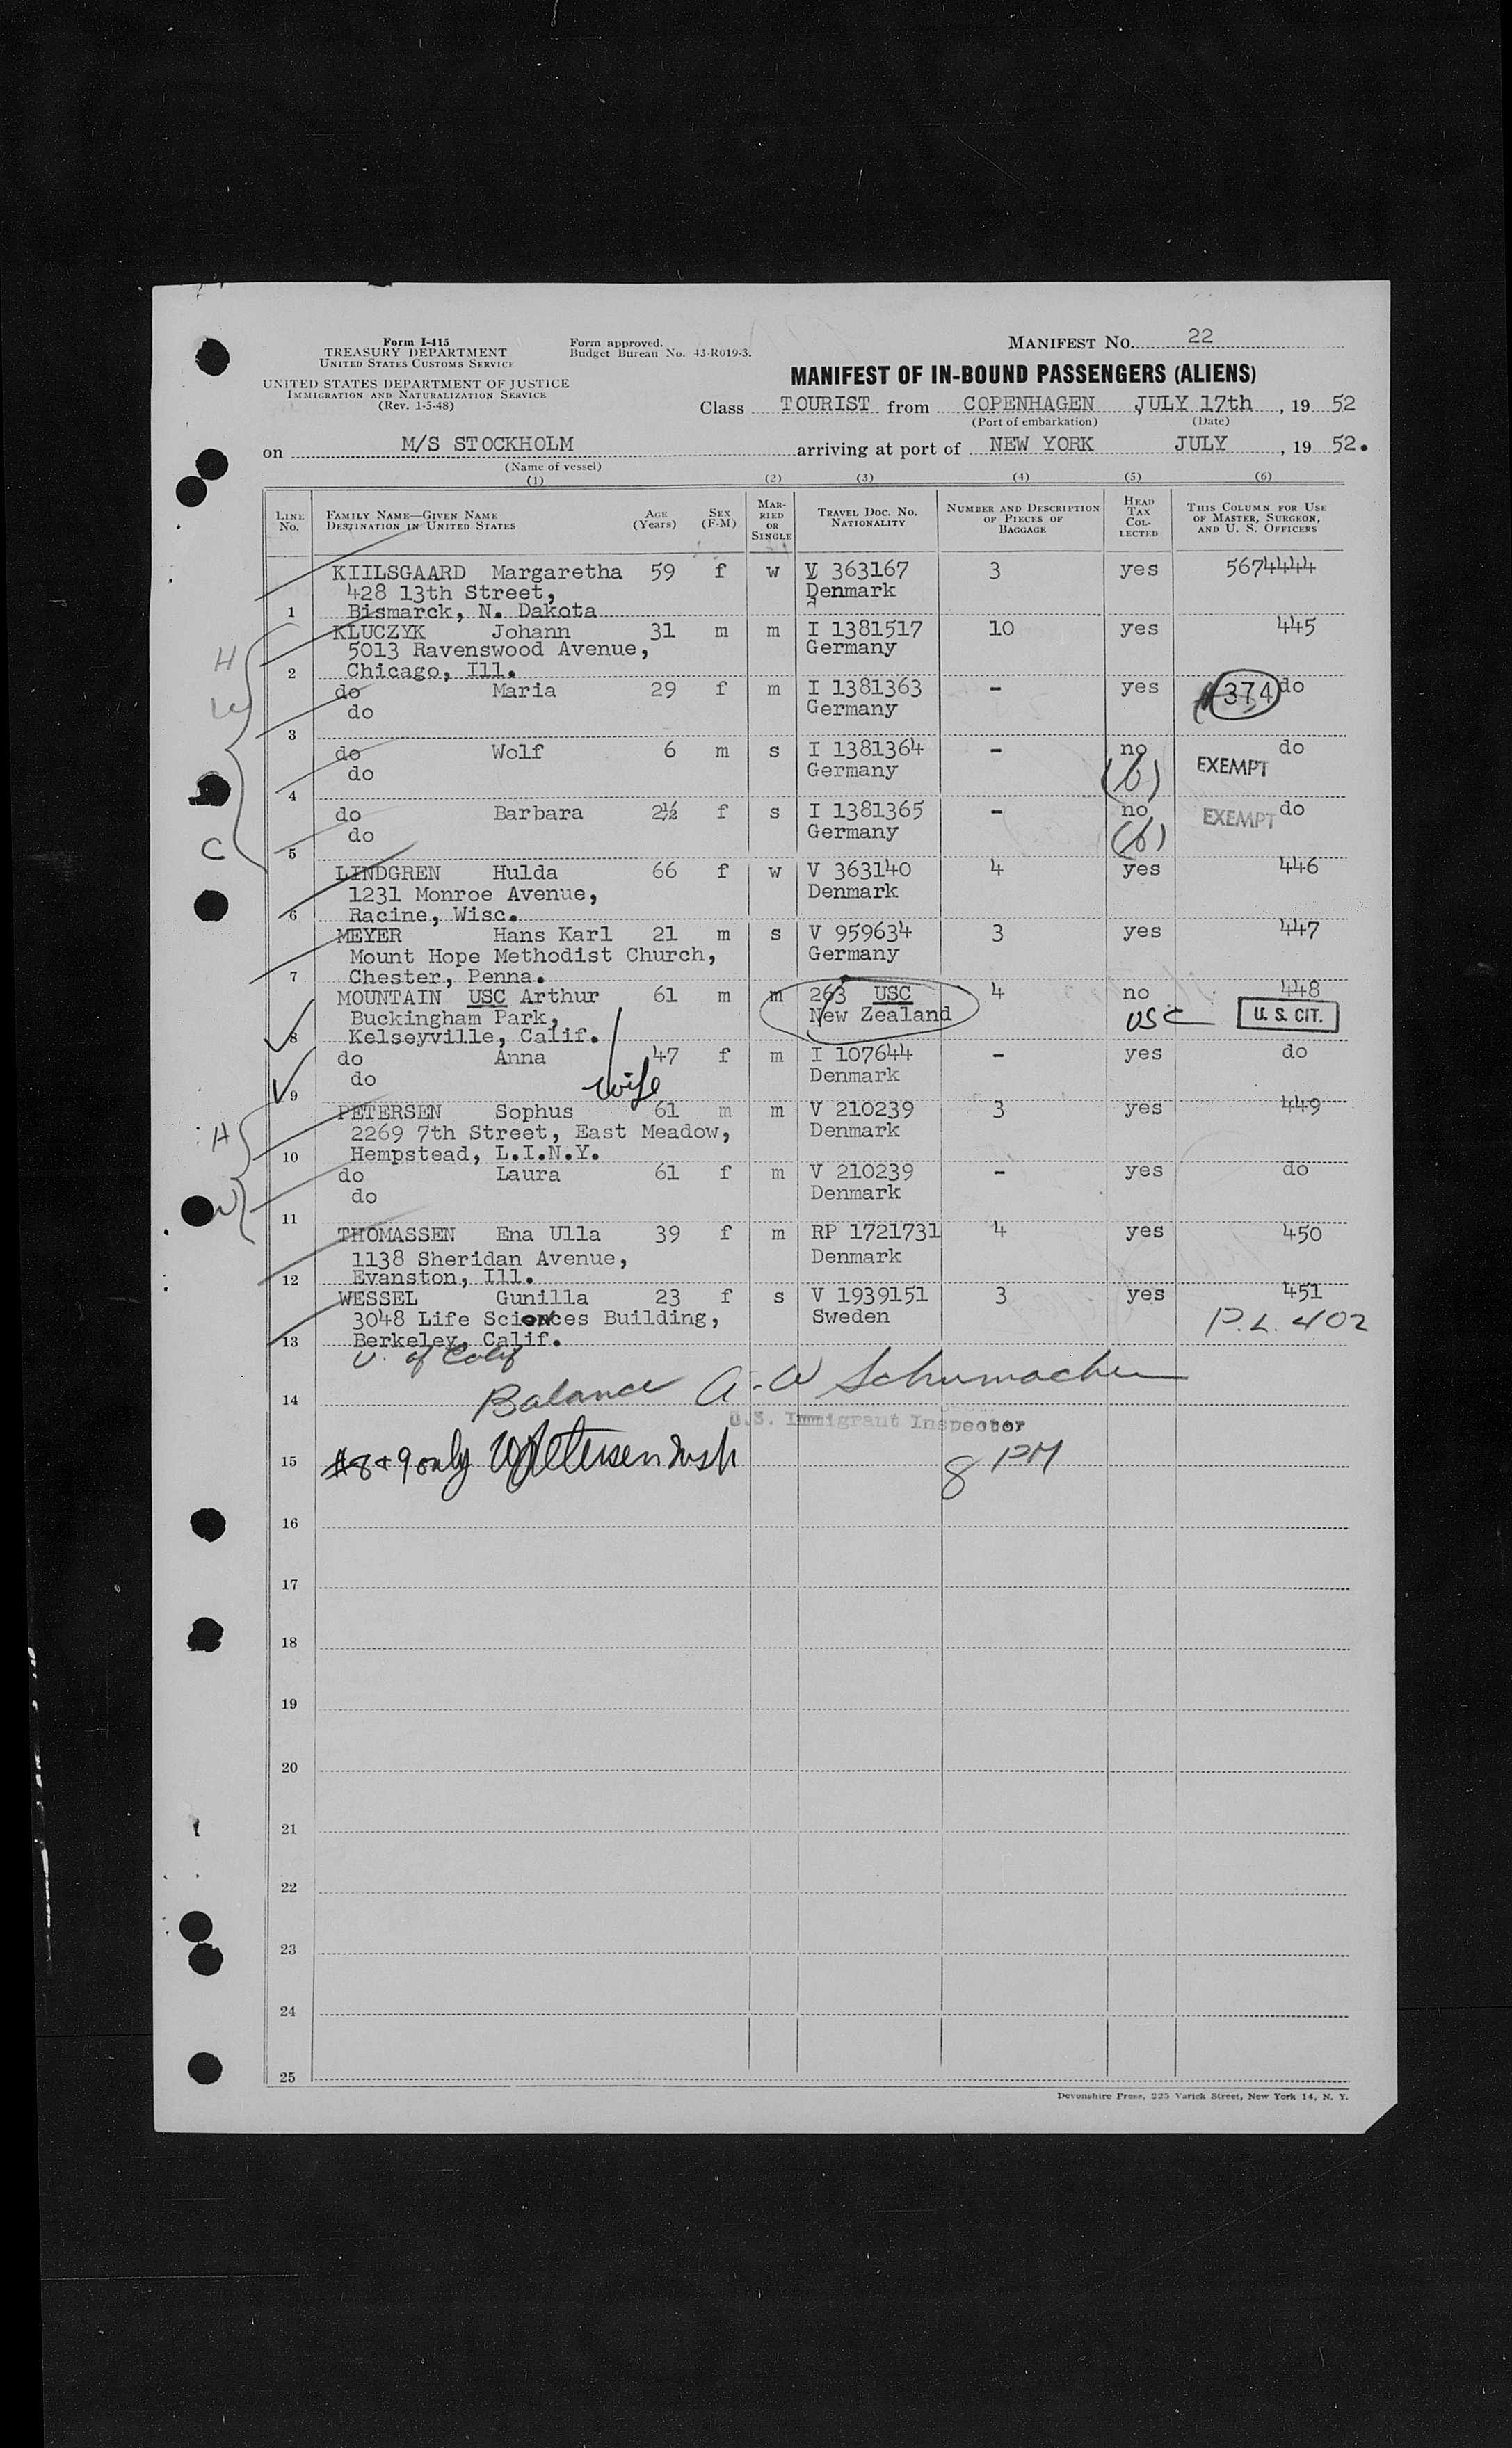 Form I-415
TREASURY DEPARTMENT
UNITED STATES CUSTOMS SERVICE
UNITED STATES DEPARTMENT OF JUSTICE
IMMIGRATION AND NATURALIZATION SERVICE
(Rev. 1-5-48)
Form approved.
Budget Bureau No. 43-R019-3.
MANIFEST NO. 22
MANIFEST OF IN-BOUND PASSENGERS (ALIENS)
Class TOURIST from COPENHAGEN JULY 17th, 19 52
(Port of embarkation) (Date)
on M/S STOCKHOLM arriving at port of NEW YORK JULY, 19 52.
(Name of vessel)
(1) (2) (3) (4) (5) (6)
LINE No. FAMILY NAME—GIVEN NAME DESTINATION IN UNITED STATES AGE (Years) SEX (F-M) MARRIED OR SINGLE TRAVEL DOC. NO. NATIONALITY NUMBER AND DESCRIPTION OF PIECES OF BAGGAGE HEAD TAX COLLECTED THIS COLUMN FOR USE OF MASTER, SURGEON, AND U. S. OFFICERS
KIILSGAARD Margaretha 59 f w V 363167 3 yes 5674444
428 13th Street, Denmark
1 Bismarck, N. Dakota
KLUCZYK Johann 31 m m I 1381517 10 yes 445
H 5013 Ravenswood Avenue, Germany
2 Chicago, Ill.
do Maria 29 f m I 1381363 - yes 374 do
W do Germany
3
do Wolf 6 m s I 1381364 - no do
do Germany (b) EXEMPT
4
do Barbara 2½ f s I 1381365 - no EXEMPT do
do Germany (b)
C 5
LINDGREN Hulda 66 f w V 363140 4 yes 446
1231 Monroe Avenue, Denmark
6 Racine, Wisc.
MEYER Hans Karl 21 m s V 959634 3 yes 447
Mount Hope Methodist Church, Germany
7 Chester, Penna.
MOUNTAIN USC Arthur 61 m m 263 USC 4 no 448
Buckingham Park, New Zealand USC U. S. CIT.
8 Kelseyville, Calif.
do Anna 47 f m I 107644 - yes do
do wife Denmark
9
PETERSEN Sophus 61 m m V 210239 3 yes 449
H 2269 7th Street, East Meadow, Denmark
10 Hempstead, L.I.N.Y.
do Laura 61 f m V 210239 - yes do
W do Denmark
11
THOMASSEN Ena Ulla 39 f m RP 1721731 4 yes 450
1138 Sheridan Avenue, Denmark
12 Evanston, Ill.
WESSEL Gunilla 23 f s V 1939151 3 yes 451
3048 Life Sciences Building, Sweden P.L. 402
13 Berkeley, Calif.
U. of Calif
14 Balance A. W Schumacher
U.S. Immigrant Inspector
15 #8+9 only Petersen Insp 8 PM
16
17
18
19
20
21
22
23
24
25
Devonshire Press, 225 Varick Street, New York 14, N. Y.